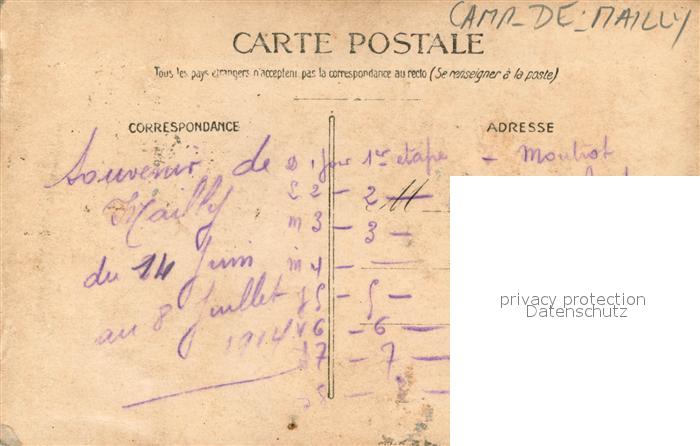 CAMP-DE-MAILLY
CARTE POSTALE
Tous les pays étrangers n'acceptent pas la correspondance au recto (Se renseigner à la poste)
CORRESPONDANCE
ADRESSE
Souvenir de
Mailly
du 14 Juin
au 8 Juillet
1914
D 1 jour 1er etape -
L 2 - 2 - 11
m 3 - 3 -
m 4 -
J 5 - 5 -
V 6 - 6 -
7 - 7 -
privacy protection
Datenschutz